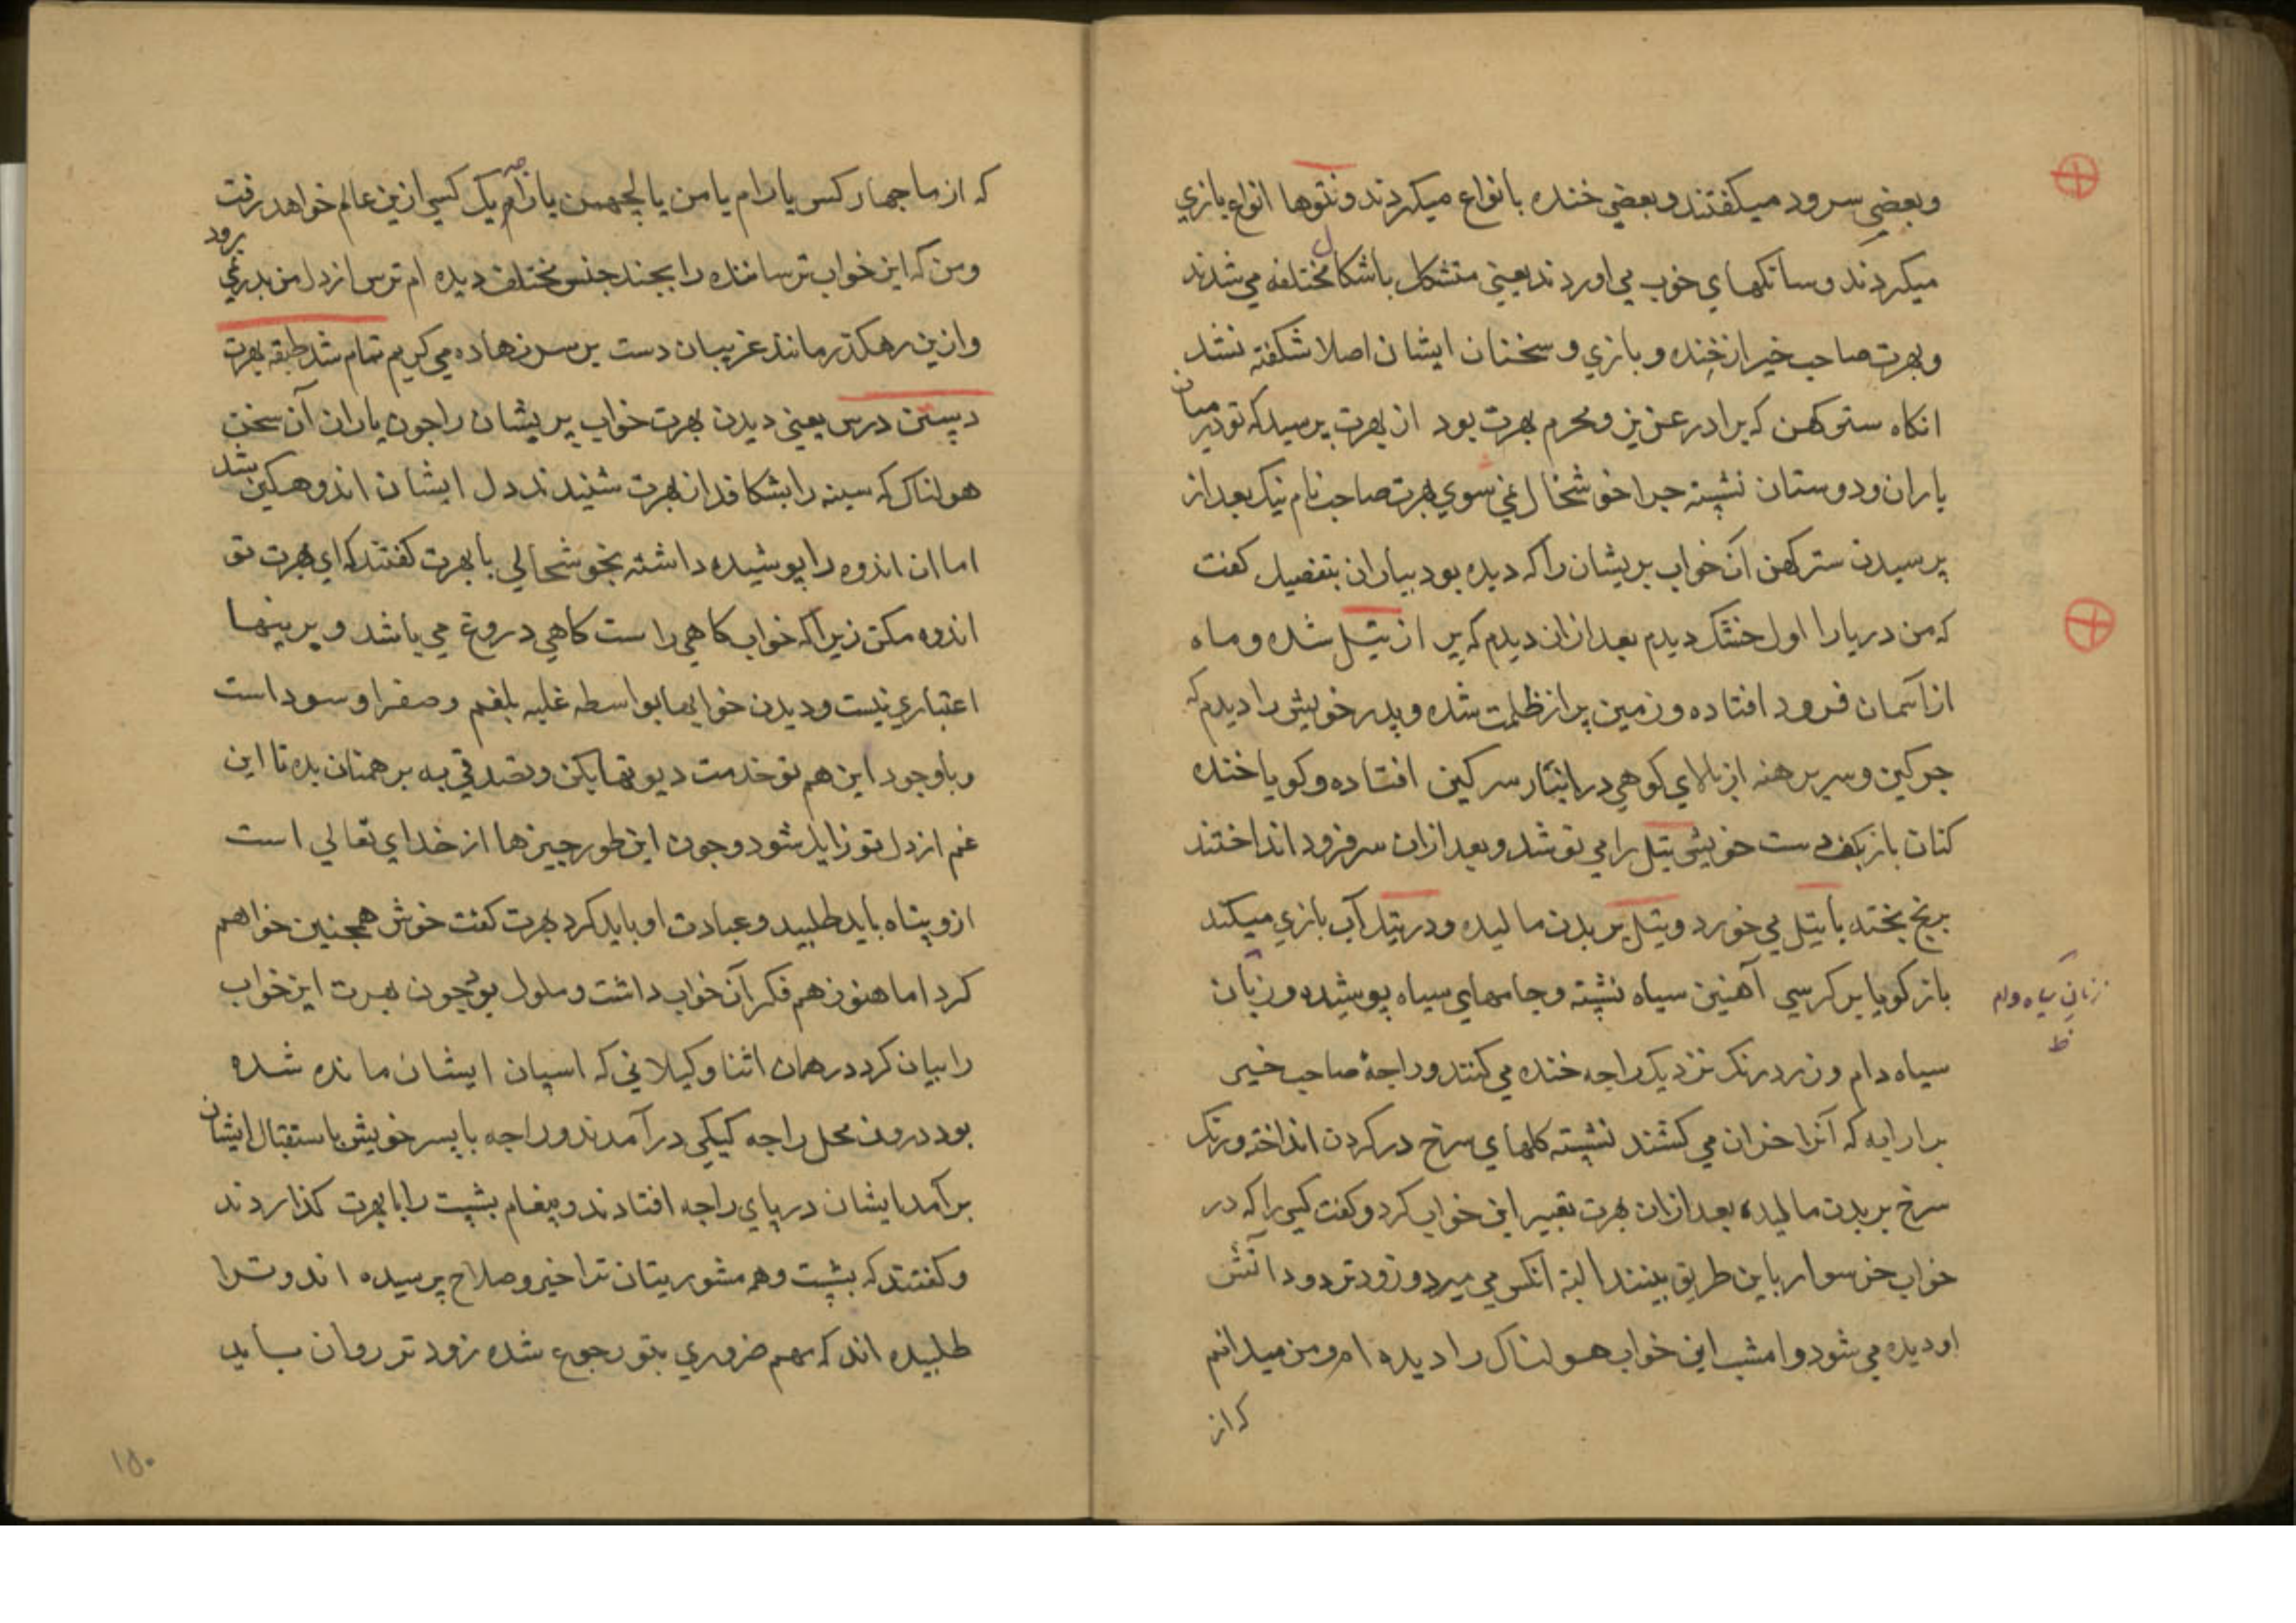 وبعضي سرود ميكفتند وبعضي خنده بانواع ميكردند ونتوها انواع بازي
ميكردند وسانكهاي خوب مي اوردند يعني متشكل باشكال مختلفه مي شدند
وبهرت صاحب خير از خنده و بازي و سخنان ايشان اصلا شكفته نشد
انكاه ستركهن كه برادر عزيز ومحرم بهرت بود از بهرت پرسيد كه تو درميان
ياران ودوستان نشسته چرا خوشحال نمي سوي بهرت صاحب نام نيك بعد از
پرسيدن ستركهن آن خواب پريشان را كه ديده بود بياران بتفصيل كفت
كه من دريا را اول خشك ديدم بعد ازان ديدم كه پر از تيل شده و ماه
از آسمان فرود افتاده وزمين پر از ظلمت شده وپدر خويش را ديدم كه
چركين وسر برهنه از بالاي كوهي در انبار سركين افتاده وكويا خنده
كنان باز بكف دست خويش تيل را مي نوشد وبعد ازان سر فرود انداختند
برنج پخته با تيل مي خورد وتيل بر بدن ماليده ودر تيل آب بازي ميكند
باز كويا بر كرسي آهنين سياه نشسته وجامهاي سياه پوشيده وزنان
زنان سياه دام
ظ
سياه دام وزرد رنك نزديك راجه خنده مي كنند وراجهٔ صاحب خير
بر ارابه كه آنرا خران مي كشند نشسته كلهاي سرخ در كردن انداخته ورنك
سرخ بر بدن ماليده بعد ازان بهرت تعبير اين خواب كرد وكفت كسي را كه در
خواب خر سوار باين طريق بينند البته انكس مي ميرد وزودتر دود آتش
او ديده مي شود وامشب اين خواب هولناك را ديده ام ومن ميدانم
كه از
كه از ما چهار كس يا رام يا من يا لچهمن يا راجه يك كسي ازين عالم خواهد رفت
ومن كه اين خواب ترساننده را بچند جنس مختلف ديده ام ترس از دل من بدر نمي رود
وازين رهكذر مانند غريبان دست بر سر نهاده مي كريم تمام شد طبقه بهرت
دپسن درس يعني ديدن بهرت خواب پريشان را چون ياران آن سخن
هولناك كه سينه را بشكافد از بهرت شنيدند دل ايشان اندوهكين شد
اما ان اندوه را پوشيده داشته بخوشحالي با بهرت كفتند كه اي بهرت تو
اندوه مكن زيرا كه خواب كاهي راست كاهي دروغ مي باشد و برينها
اعتباري نيست وديدن خوابها بواسطه غلبه بلغم وصفرا وسودا است
وباوجود اين هم تو خدمت ديوتها بكن وتصدقي به برهمنان بده تا اين
غم از دل تو زايل شود وچون اين طور چيزها از خداي تعالي است
ازو پناه بايد طلبيد وعبادت او بايد كرد بهرت كفت خوش همچنين خواهم
كرد اما هنوز هم فكر آن خواب داشت وملول بود چون بهرت اين خواب
را بيان كرد در همان اثنا وكيلاني كه اسپان ايشان مانده شده
بود درون محل راجه كيكي در آمدند وراجه با پسر خويش باستقبال ايشان
برآمد ايشان در پاي راجه افتادند وپيغام بشپت را با بهرت كذاردند
وكفتند كه بشپت وهم مشوريتان ترا خير وصلاح پرسيده اند وترا
طلبيده اند كه مهم ضروري بتو رجوع شده زود تر روان بيايد
١٥٠